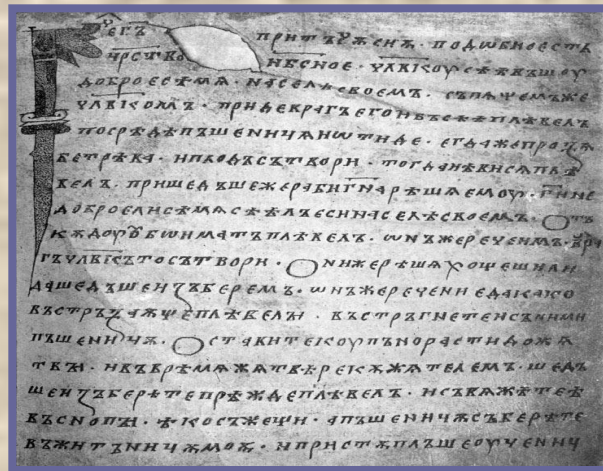 егъ притъчѫ сеиѫ · подѡбно есть
црство нбсное · члвкоу сѣѣвъшоу
доброе сѣмѧ · на селѣ своемъ · съпѧщемъже
члвкомъ · приде врагъ его и въсѣѣ плѣвелъ
посрѣдѣ пъшеничѧ и ѡтиде · егдаже прозѧ
бе трѣва · и плодъ сътвори · тогда ѣви сѧ плѣ
велъ · пришедъшеже раби гна рѣшѧ емоу · ги не
доброе ли сѣмѧ сѣѣлъ еси на селѣ своемъ · Отъ
кѫдоу оубѡ иматъ плѣвелъ · ѡнъже рече имъ · вра
гъ члвкъ то сътвори · Ониже рѣшѧ хощеши ли
да шедъше изъберемъ · ѡнъже рече ни еда како
въстръзаѫще плѣвелы · въстръгнете и съ ними
пъшеничѫ · Оставите коупьно расти до жѧ
твы · и въ врѣмѧ жѧтвѣ рекѫ жѧтелемъ · шедъ
ше изъберѣте прѣжде плѣвелъ · и съвѧжѣте ѣ
въ снопы · ѣко съжещи · а пъшеничѫ съберѣте
въ житъничѫ моѫ · и пристѫплъше оученич